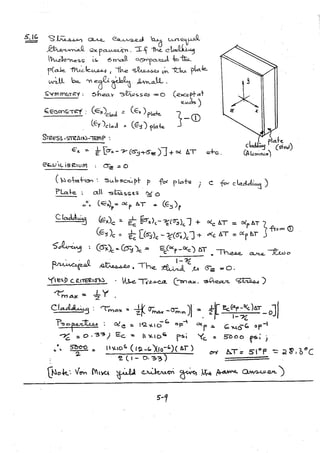 5.16 Stresses are caused by unequal
thermal expansion. If the cladding
thickness is small compared to the
plate thickness, the stresses in the plate
will be negligibly small.
SYMMETRY: shear stresses = 0 (except at
ends)
GEOMETRY: (εx)clad = (εx)plate
(εy)clad = (εy)plate } – ①
3
plate
(steel)
cladding
(Aluminum)
STRESS-STRAIN-TEMP:
εx = 1/E [σx - ν(σy + σz)] + α ΔT etc.
EQUILIBRIUM: σz = 0
(Notation: Subscript p for plate; c for cladding)
Plate: all stresses ≈ 0
∴ (εx)p = αp ΔT = (εy)p
Cladding (εx)c = 1/Ec [(σx)c - νc(σy)c] + αc ΔT = αp ΔT
(εy)c = 1/Ec [(σy)c - νc(σx)c] + αc ΔT = αp ΔT } from ①
Solving: (σx)c = (σy)c = Ec(αp - αc) ΔT / 1 - νc. These are two
principal stresses. The third is σz = 0.
YIELD CRITERION: Use Tresca (max. shear stress)
τmax = 1/2 Y.
Cladding: τmax = 1/2 |(σmax - σmin)| = 1/2 [Ec(αp - αc)ΔT / 1 - νc - 0]
Properties: αc = 12 x 10^-6 °F^-1 αp = 6 x 10^-6 °F^-1
νc = 0.33; Ec = 11 x 10^6 psi Yc = 5000 psi;
∴ 5000/2 = 11 x 10^6 (12-6)(10^-6)(ΔT) / 2(1 - 0.33) or ΔT = 51°F = 28.3°C
[Note: Von Mises yield criterion gives the same answer.]
5-9